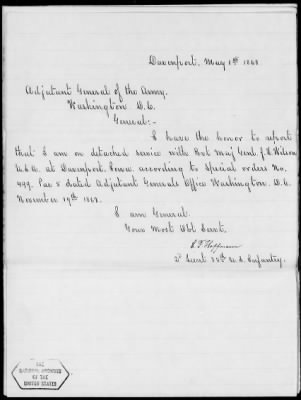 Davenport, May 1st 1868
Adjutant General of the Army,
Washington D.C.
General:-
I have the honor to report
that I am on detached service with Bvt Maj Genl. J.H. Wilson
U.S.A. at Davenport, Iowa, according to Special orders No.
499. Par 5 dated Adjutant Generals Office Washington, D.C.
November 19th 1867.
I am General.
Your Most Obt Servt.
E. F. Hoffmann
2d Lieut 35th U.S. Infantry.
THE
NATIONAL ARCHIVES
OF THE
UNITED STATES